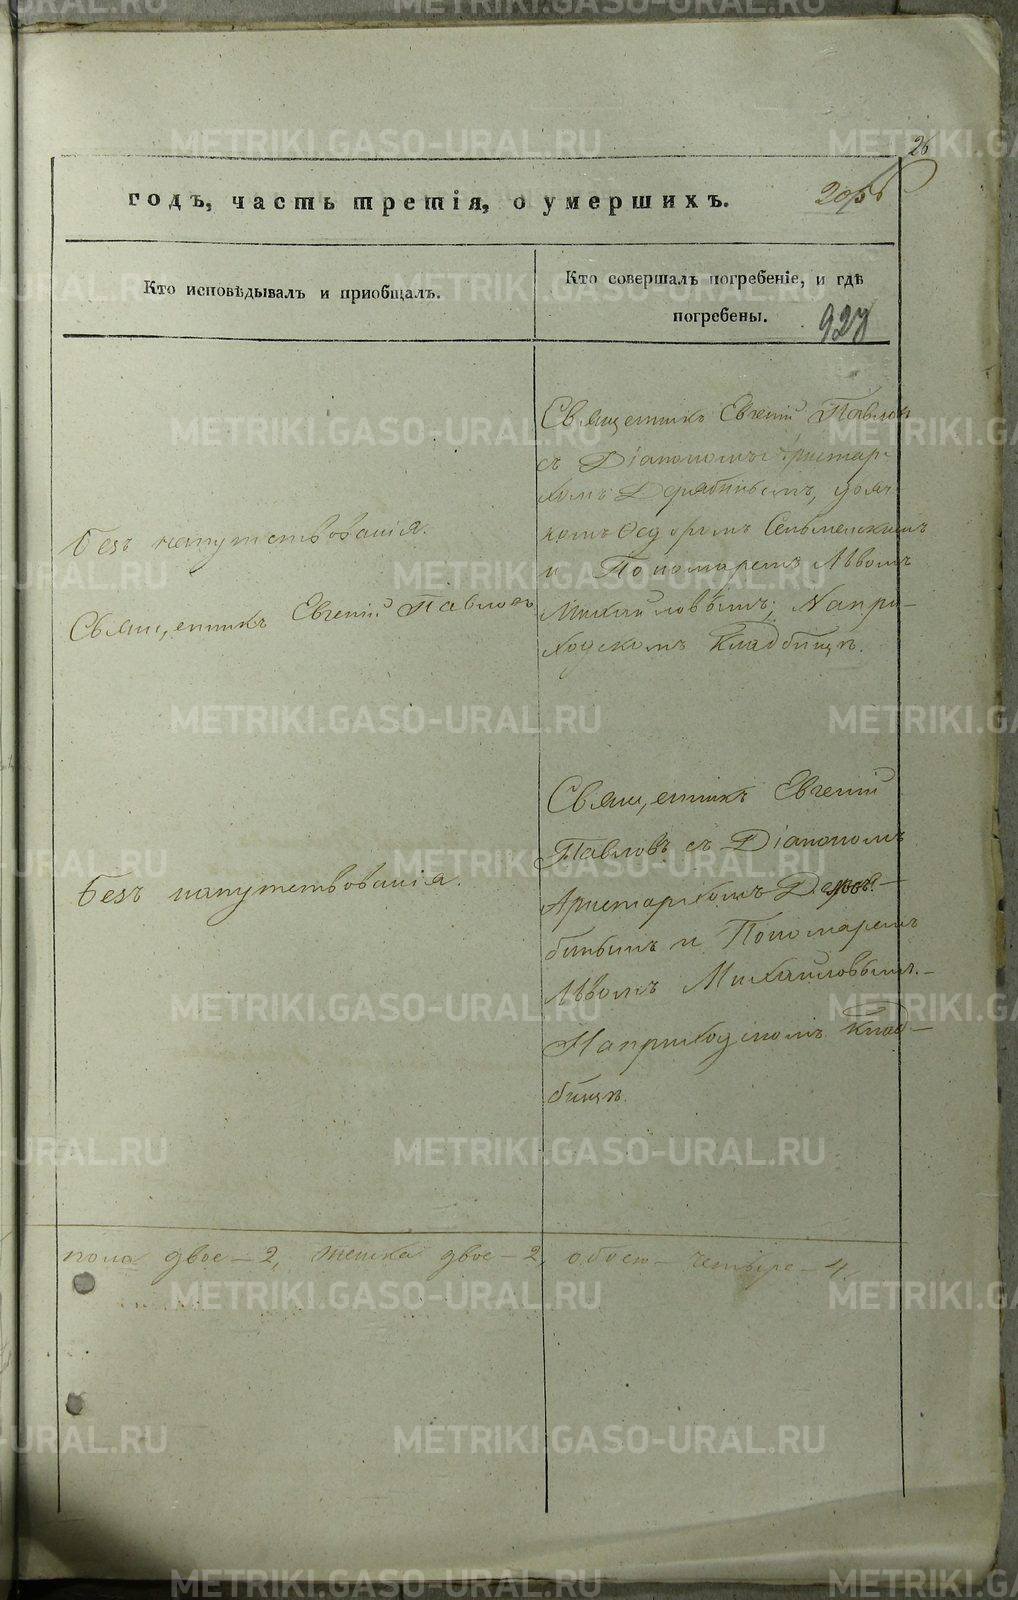 26
годъ, часть третія, о умершихъ.
Кто исповѣдывалъ и пріобщалъ.
Кто совершалъ погребеніе, и гдѣ
погребены.
Безъ напутствованія.
Священникъ Евгеній Павловъ
Священникъ Евгеній Павловъ
съ Діакономъ Аристар-
хомъ Дерябинымъ, дьяч-
комъ Ѳедоромъ
и Пономаремъ Львомъ
Михайловымъ; На при-
ходскомъ кладбищѣ.
Безъ напутствованія.
Священникъ Евгеній
Павловъ съ Діакономъ
Аристархомъ Деря-
бинымъ и Пономаремъ
Львомъ Михайловымъ.
На приходскомъ клад-
бищѣ.
пола двое – 2, женска двое – 2, обоего – четыре – 4.
METRIKI.GASO-URAL.RU